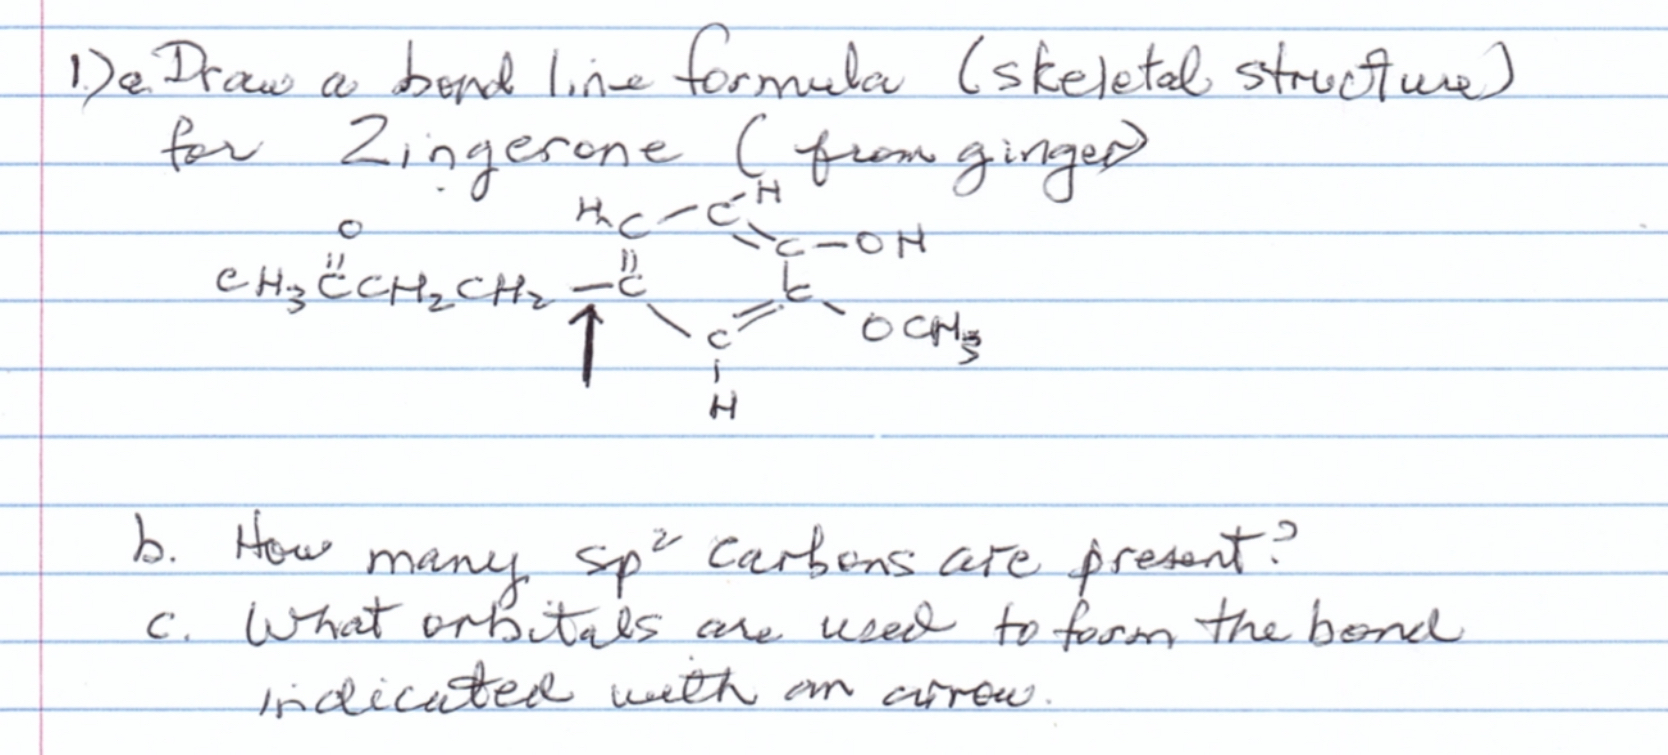 1.) a. Draw a bond line formula (skeletal structure)
for Zingerone (from ginger)
H C — C H
O
C — OH
CH3 C CH2 CH2 — C
C
OCH3
C
H
b. How many sp² carbons are present?
c. What orbitals are used to form the bond
indicated with an arrow.